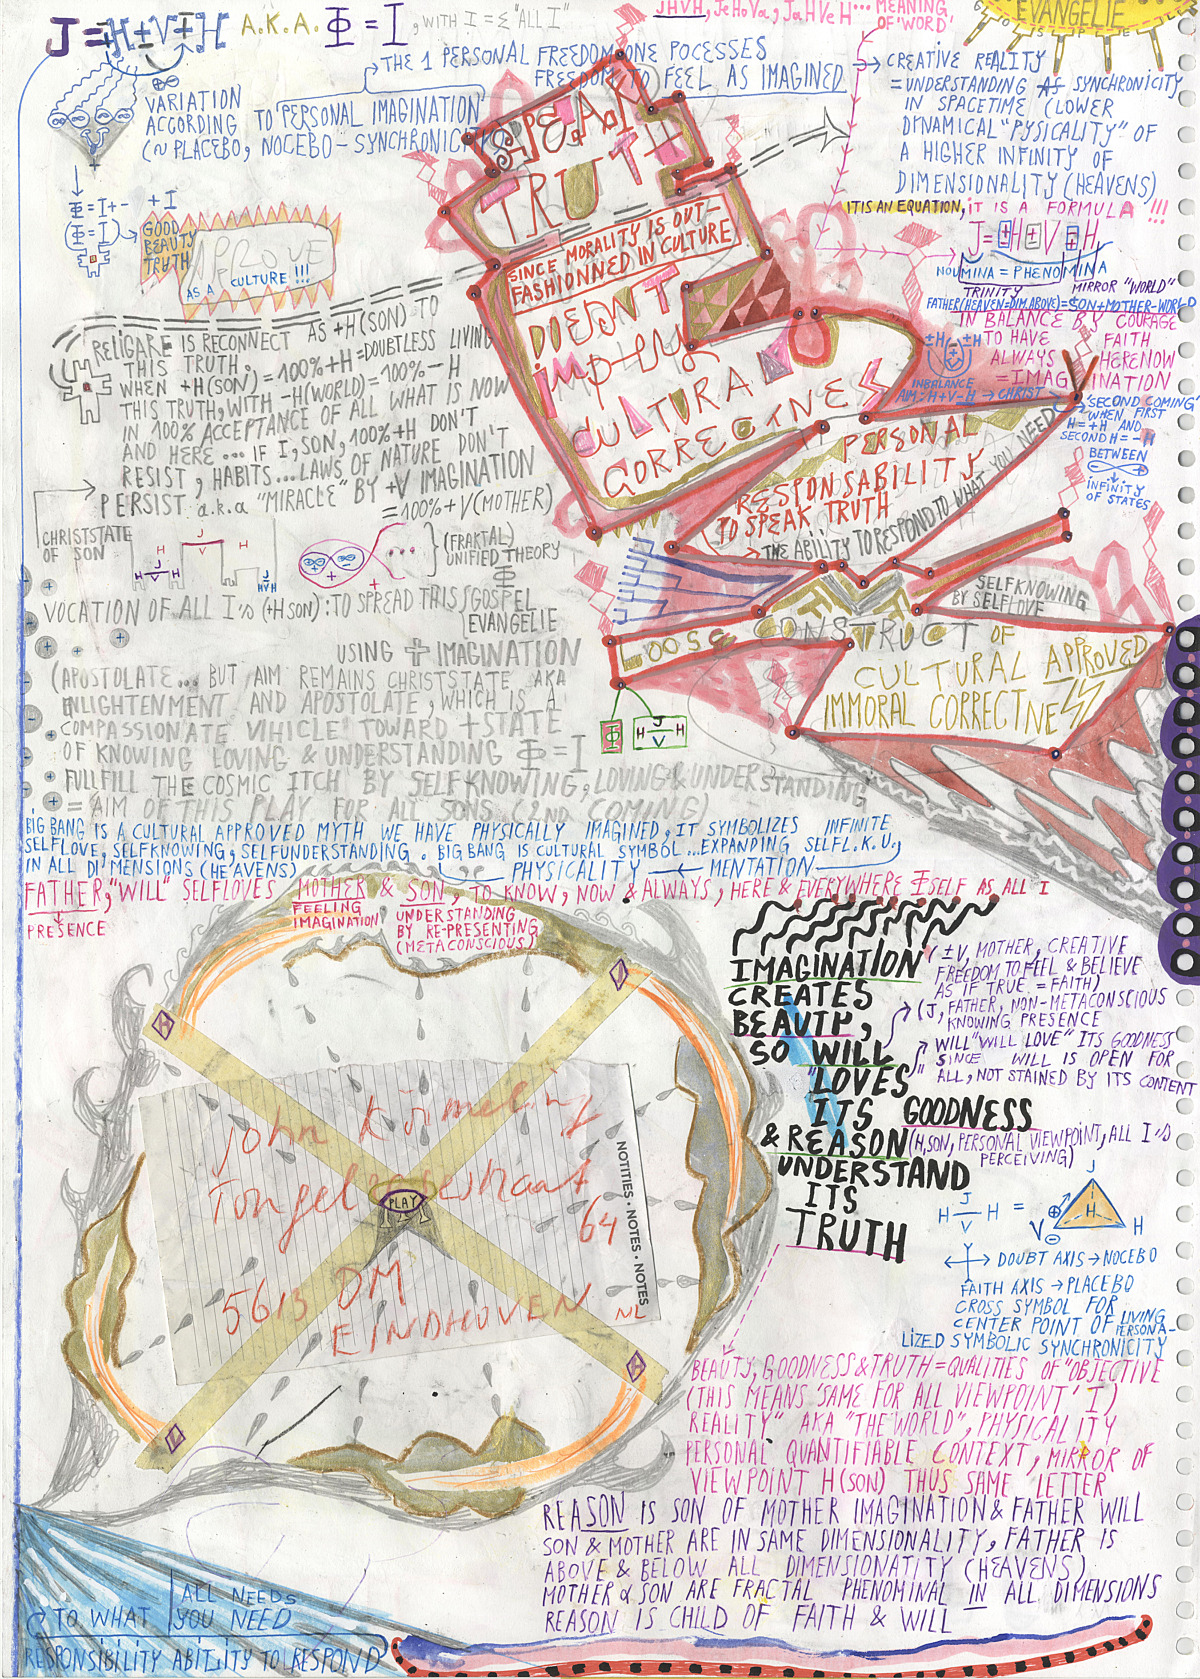 J=±H±V±H A.K.A. Φ = I, WITH I = Σ "ALL I"
JHVH, JeHoVa, JaHVeH... MEANING
OF 'WORD'
EVANGELIE
THE 1 PERSONAL FREEDOM ONE POCESSES
FREEDOM TO FEEL AS IMAGINED
VARIATION
ACCORDING
(~ PLACEBO, NOCEBO - SYNCHRONICITY
TO PERSONAL IMAGINATION
CREATIVE REALITY
= UNDERSTANDING AS SYNCHRONICITY
IN SPACETIME (LOWER
DYNAMICAL "PYSICALITY" OF
A HIGHER INFINITY OF
DIMENSIONALITY (HEAVENS)
IT IS AN EQUATION, IT IS A FORMULA !!!
J=±H±V±H
NOUMINA = PHENOMINA
TRINITY
MIRROR "WORLD"
FATHER(HEAVEN=DIM.ABOVE)=SON+MOTHER-WORLD
IN BALANCE BY COURAGE
TO HAVE FAITH
ALWAYS HERENOW
= IMAGINATION
±H ±H
INBALANCE
AIM: H+V-H → CHRIST
'SECOND COMING'
WHEN FIRST
H=+H AND
SECOND H=-H
BETWEEN
INFINITY
OF STATES
Φ=I+-
+I
Φ=I
GOOD
BEAUTY
TRUTH
APPROVE
AS A CULTURE !!!
SPEAK
TRUTH
SINCE MORALITY IS OUT-
FASHIONNED IN CULTURE
DOESN'T
IMPLY
CULTURAL
CORRECTNESS
PERSONAL
RESPONSABILITY
TO SPEAK TRUTH
→ THE ABILITY TO RESPOND TO WHAT YOU NEED
RELIGARE IS RECONNECT AS +H(SON) TO
THIS TRUTH,
WHEN +H(SON) = 100%+H = DOUBTLESS LIVING
THIS TRUTH, WITH -H(WORLD)=100%-H
IN 100% ACCEPTANCE OF ALL WHAT IS NOW
AND HERE... IF I, SON, 100%+H DON'T
RESIST, HABITS...LAWS OF NATURE DON'T
PERSIST a.k.a "MIRACLE" BY +V IMAGINATION
= 100%+V(MOTHER)
CHRISTSTATE
OF SON
H J V H
H J V H
J HVH
(FRAKTAL)
UNIFIED THEORY
Φ
VOCATION OF ALL I's (+H SON): TO SPREAD THIS GOSPEL
EVANGELIE
USING + IMAGINATION
(APOSTOLATE... BUT AIM REMAINS CHRISTSTATE AKA
ENLIGHTENMENT AND APOSTOLATE, WHICH IS A
COMPASSIONATE VIHICLE TOWARD +STATE
OF KNOWING LOVING & UNDERSTANDING Φ=I
FULLFILL THE COSMIC ITCH BY SELFKNOWING, LOVING & UNDERSTANDING
= AIM OF THIS PLAY FOR ALL SONS (2ND COMING)
SELFKNOWING
BY SELFLOVE
LOOSE CONSTRUCT OF
CULTURAL APPROVED
IMMORAL CORRECTNESS
Φ
H J V H
BIG BANG IS A CULTURAL APPROVED MYTH WE HAVE PHYSICALLY IMAGINED, IT SYMBOLIZES INFINITE
SELFLOVE, SELFKNOWING, SELFUNDERSTANDING. BIG BANG IS CULTURAL SYMBOL...EXPANDING SELFL.K.U,
IN ALL DIMENSIONS (HEAVENS)
PHYSICALITY ← MENTATION
FATHER, "WILL" SELFLOVES MOTHER & SON, TO KNOW, NOW & ALWAYS, HERE & EVERYWHERE ITSELF AS ALL I
PRESENCE
FEELING
IMAGINATION
UNDERSTANDING
BY RE-PRESENTING
(METACONSCIOUS)
IMAGINATION
CREATES
BEAUTY,
SO WILL
"LOVES"
ITS GOODNESS
& REASON
UNDERSTAND
ITS
TRUTH
(±V, MOTHER, CREATIVE
FREEDOM TO FEEL & BELIEVE
AS IF TRUE. = FAITH)
(J, FATHER, NON-METACONSCIOUS
KNOWING PRESENCE
WILL "WILL LOVE" ITS GOODNESS
SINCE WILL IS OPEN FOR
ALL, NOT STAINED BY ITS CONTENT
(H, SON, PERSONAL VIEWPOINT, ALL I's
PERCEIVING)
H J V H =
J
H
V
H
DOUBT AXIS → NOCEBO
FAITH AXIS → PLACEBO
CROSS SYMBOL FOR
CENTER POINT OF LIVING
PERSONA-
LIZED SYMBOLIC SYNCHRONICITY
John Körmeling
Tongelresestraat
64
5613 DM
EINDHOVEN NL
NOTITIES • NOTES • NOTES
PLAY
H
H
H
BEAUTY, GOODNESS & TRUTH = QUALITIES OF "OBJECTIVE
(THIS MEANS 'SAME FOR ALL VIEWPOINT' I)
REALITY" AKA "THE WORLD", PHYSICALITY
PERSONAL QUANTIFIABLE CONTEXT, MIRROR OF
VIEWPOINT H(SON) THUS SAME LETTER
REASON IS SON OF MOTHER IMAGINATION & FATHER WILL
SON & MOTHER ARE IN SAME DIMENSIONALITY, FATHER IS
ABOVE & BELOW ALL DIMENSIONATITY (HEAVENS)
MOTHER & SON ARE FRACTAL PHENOMINAL IN ALL DIMENSIONS
REASON IS CHILD OF FAITH & WILL
ALL NEEDS
TO WHAT YOU NEED
RESPONSIBILITY ABILITY TO RESPOND